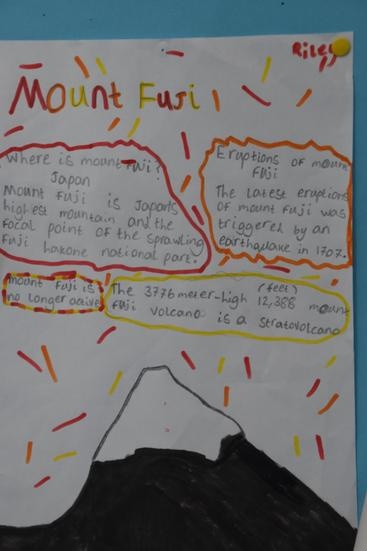 Riley
Mount Fuji
Where is mount Fuji?
Japan
Mount Fuji is Japan's
highest mountain and the
focal point of the sprawling
Fuji hakone national park.
Eruptions of mount
Fuji
The latest eruptions
of mount Fuji was
triggered by an
earthquake in 1707.
Mount Fuji is
no longer active
The 3776 meter-high (feet) 12,388 mount
fuji volcano is a stratovolcano